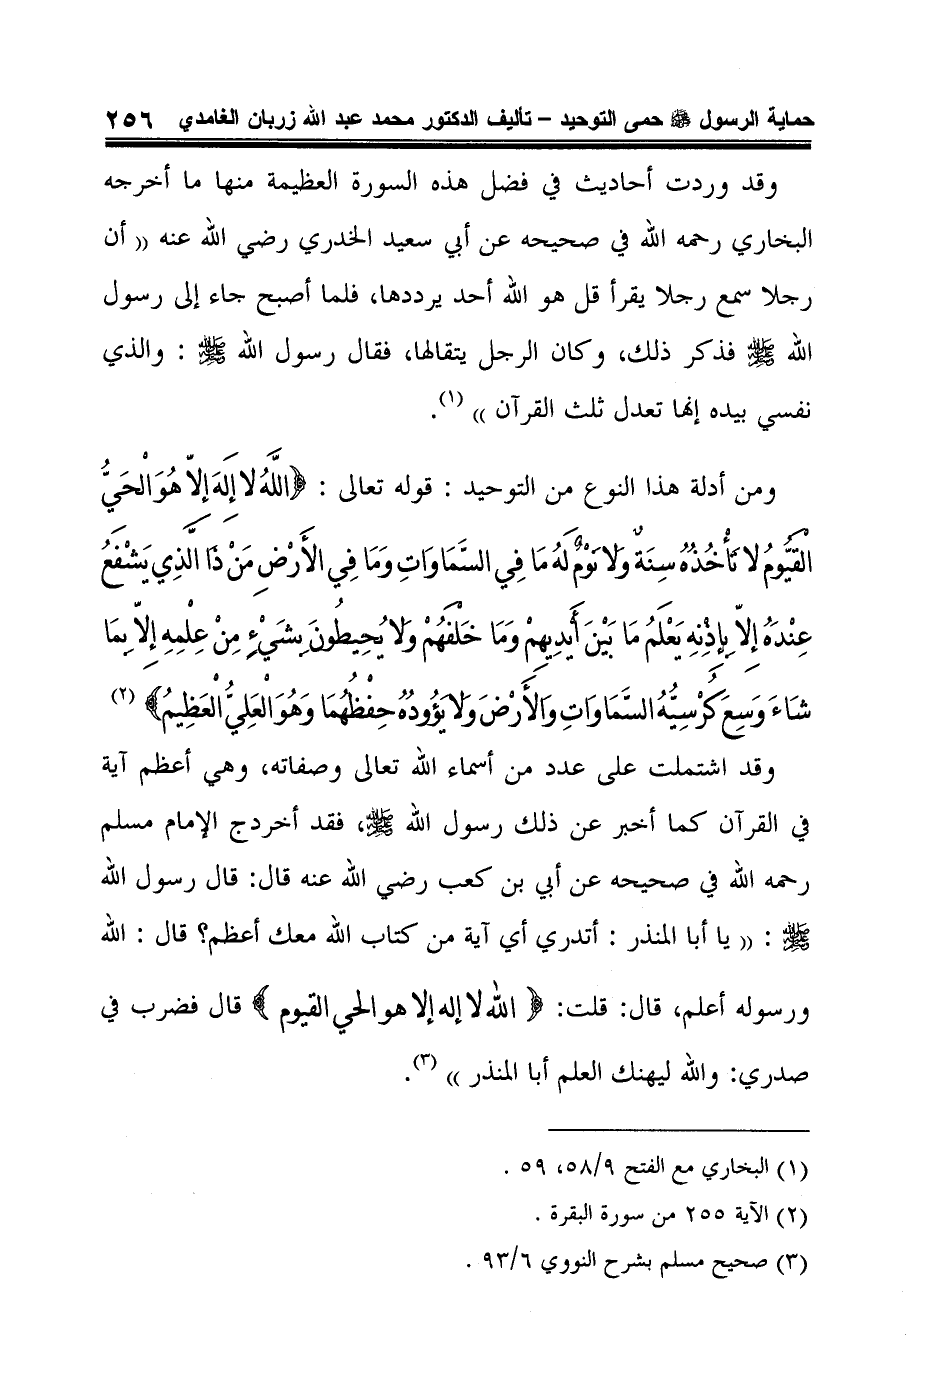 حماية الرسول ﷺ حمى التوحيد – تأليف الدكتور محمد عبد الله زربان الغامدي ٢٥٦
وقد وردت أحاديث في فضل هذه السورة العظيمة منها ما أخرجه
البخاري رحمه الله في صحيحه عن أبي سعيد الخدري رضي الله عنه (( أن
رجلا سمع رجلا يقرأ قل هو الله أحد يرددها، فلما أصبح جاء إلى رسول
الله ﷺ فذكر ذلك، وكان الرجل يتقالها، فقال رسول الله ﷺ : والذي
نفسي بيده إنها تعدل ثلث القرآن )) (١).
ومن أدلة هذا النوع من التوحيد : قوله تعالى : ﴿اللَّهُ لا إِلَهَ إِلاَّ هُوَ الْحَيُّ
الْقَيُّومُ لا تَأْخُذُهُ سِنَةٌ وَلا نَوْمٌ لَهُ مَا فِي السَّمَاوَاتِ وَمَا فِي الأَرْضِ مَنْ ذَا الَّذِي يَشْفَعُ
عِنْدَهُ إِلاَّ بِإِذْنِهِ يَعْلَمُ مَا بَيْنَ أَيْدِيهِمْ وَمَا خَلْفَهُمْ وَلا يُحِيطُونَ بِشَيْءٍ مِنْ عِلْمِهِ إِلاَّ بِمَا
شَاءَ وَسِعَ كُرْسِيُّهُ السَّمَاوَاتِ وَالأَرْضَ وَلا يَؤُودُهُ حِفْظُهُمَا وَهُوَ الْعَلِيُّ الْعَظِيمُ﴾ (٢)
وقد اشتملت على عدد من أسماء الله تعالى وصفاته، وهي أعظم آية
في القرآن كما أخبر عن ذلك رسول الله ﷺ، فقد أخردج الإمام مسلم
رحمه الله في صحيحه عن أبي بن كعب رضي الله عنه قال: قال رسول الله
ﷺ : (( يا أبا المنذر : أتدري أي آية من كتاب الله معك أعظم؟ قال : الله
ورسوله أعلم، قال: قلت: ﴿ الله لا إله إلا هو الحي القيوم ﴾ قال فضرب في
صدري: والله ليهنك العلم أبا المنذر )) (٣).
(١) البخاري مع الفتح ٥٨/٩، ٥٩ .
(٢) الآية ٢٥٥ من سورة البقرة .
(٣) صحيح مسلم بشرح النووي ٩٣/٦ .